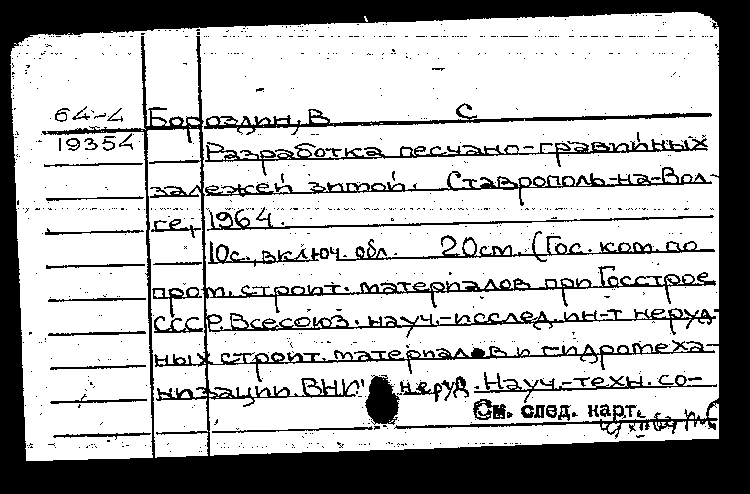 64-4 Бороздин, В С
19354 Разработка песчано-гравийных
залежей зимой. Ставрополь-на-Вол-
ге, 1964.
10с., включ. обл. 20см. (Гос. ком. по
пром. строит. материалов при Госстрое
СССР. Всесоюз. науч.-исслед. ин-т неруд-
ных строит. материалов и гидромеха-
низации. ВНИ неруд. Науч.-техн. со-
См. след. карт.